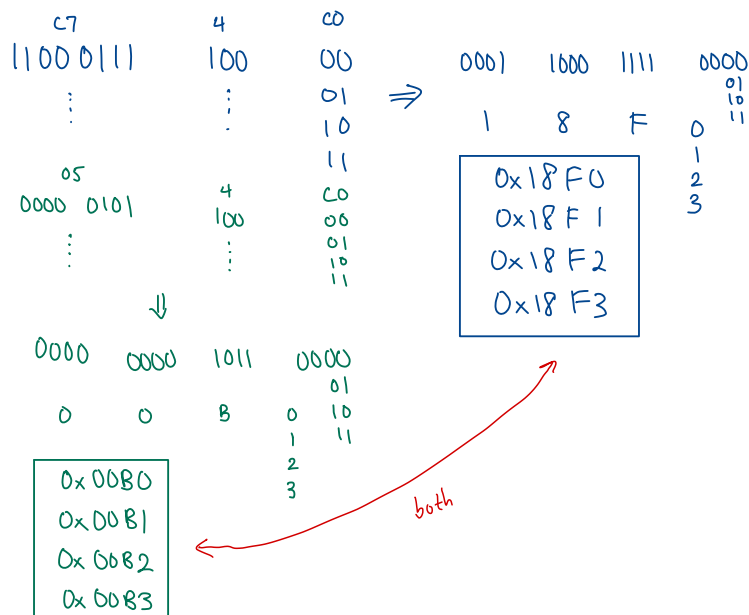 C7 4 C0
11000111 100 00
⋮ ⋮ 01
10
11
⇒
0001 1000 1111 0000
01
10
11
1 8 F 0
1
2
3
0x18F0
0x18F1
0x18F2
0x18F3
05 4 C0
0000 0101 100 00
⋮ ⋮ 01
10
11
⇓
0000 0000 1011 0000
01
10
11
0 0 B 0
1
2
3
0x00B0
0x00B1
0x00B2
0x00B3
both